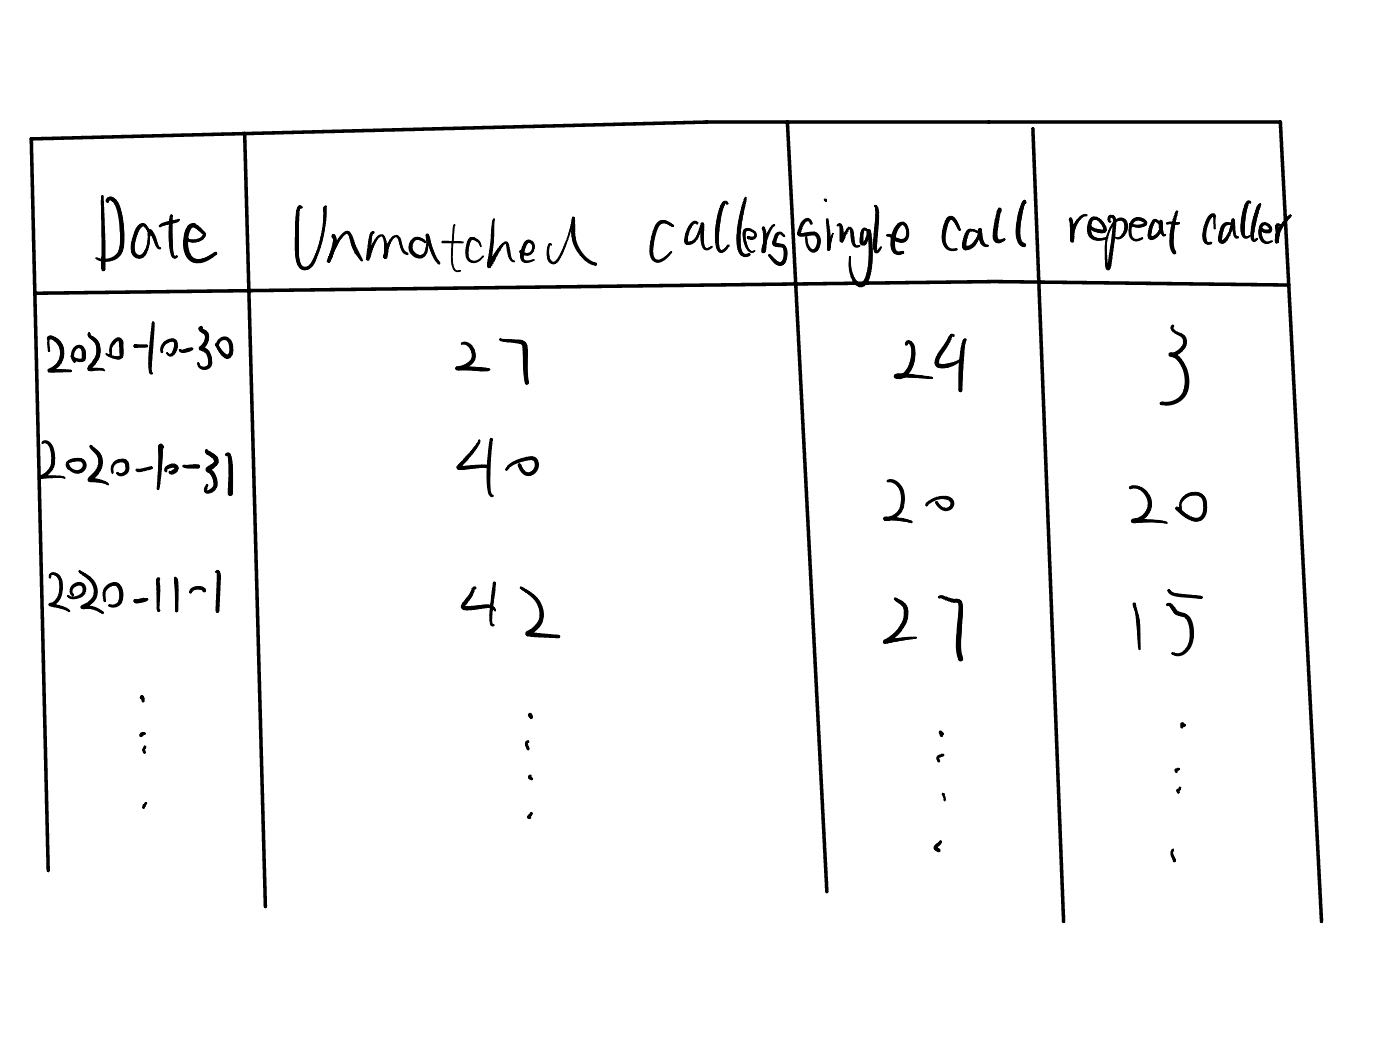 Date Unmatched callers single call repeat caller
2020-10-30 27 24 3
2020-10-31 40 20 20
2020-11-1 42 27 15